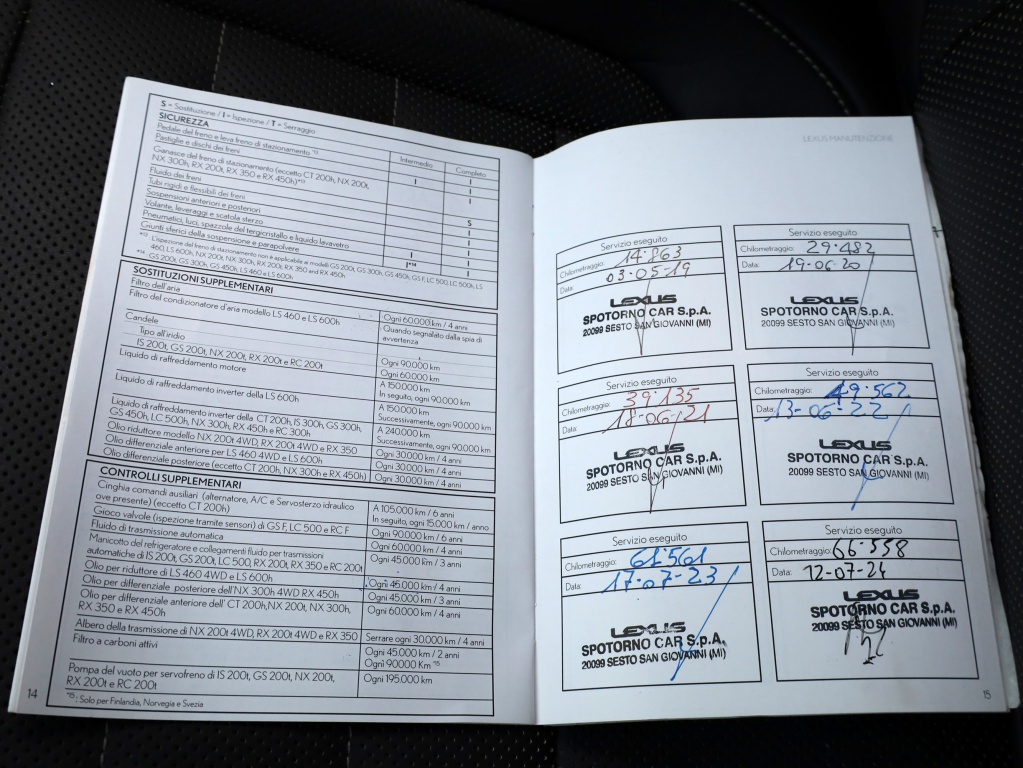 S = Sostituzione / I = Ispezione / T = Serraggio
SICUREZZA
Intermedio Completo
Pedale del freno e leva freno di stazionamento *13 I I
Pastiglie e dischi dei freni I
Ganasce del freno di stazionamento (eccetto CT 200h, NX 200t,
NX 300h, RX 200t, RX 350 e RX 450h)*13 I
Fluido dei freni S
Tubi rigidi e flessibili dei freni I
Sospensioni anteriori e posteriori I
Volante, leveraggi e scatola sterzo I
Pneumatici, luci, spazzole del tergicristallo e liquido lavavetro I I
Giunti sferici della sospensione e parapolvere I*14 I
*13 : L'ispezione del freno di stazionamento non è applicabile ai modelli GS 200t, GS 300h, GS 450h, GS F, LC 500, LC 500h, LS
460, LS 600h, NX 200t, NX 300h, RX 200t, RX 350 and RX 450h
*14 : GS 200t, GS 300h, GS 450h, LS 460 e LS 600h
SOSTITUZIONI SUPPLEMENTARI
Filtro dell'aria Ogni 60.000 km / 4 anni
Filtro del condizionatore d'aria modello LS 460 e LS 600h Quando segnalato dalla spia di
avvertenza
Candele
Tipo all'iridio Ogni 90.000 km
IS 200t, GS 200t, NX 200t, RX 200t e RC 200t Ogni 60.000 km
Liquido di raffreddamento motore A 150.000 km
In seguito, ogni 90.000 km
Liquido di raffreddamento inverter della LS 600h A 150.000 km
Successivamente, ogni 90.000 km
Liquido di raffreddamento inverter della CT 200h, IS 300h, GS 300h,
GS 450h, LC 500h, NX 300h, RX 450h e RC 300h A 240.000 km
Successivamente, ogni 90.000 km
Olio riduttore modello NX 200t 4WD, RX 200t 4WD e RX 350 Ogni 30.000 km / 4 anni
Olio differenziale anteriore per LS 460 4WD e LS 600h Ogni 30.000 km / 4 anni
Olio differenziale posteriore (eccetto CT 200h, NX 300h e RX 450h) Ogni 30.000 km / 4 anni
CONTROLLI SUPPLEMENTARI
Cinghia comandi ausiliari (alternatore, A/C e Servosterzo idraulico
ove presente) (eccetto CT 200h) A 105.000 km / 6 anni
In seguito, ogni 15.000 km / anno
Gioco valvole (ispezione tramite sensori) di GS F, LC 500 e RC F Ogni 90.000 km / 6 anni
Fluido di trasmissione automatica Ogni 60.000 km / 4 anni
Manicotto del refrigeratore e collegamenti fluido per trasmissioni
automatiche di IS 200t, GS 200t, LC 500, RX 200t, RX 350 e RC 200t Ogni 45.000 km / 3 anni
Olio per riduttore di LS 460 4WD e LS 600h Ogni 45.000 km / 4 anni
Olio per differenziale posteriore dell'NX 300h 4WD RX 450h Ogni 45.000 km / 3 anni
Olio per differenziale anteriore dell' CT 200h, NX 200t, NX 300h,
RX 350 e RX 450h Ogni 60.000 km / 4 anni
Albero della trasmissione di NX 200t 4WD, RX 200t 4WD e RX 350 Serrare ogni 30.000 km / 4 anni
Filtro a carboni attivi Ogni 45.000 km / 2 anni
Ogni 90000 Km *15
Pompa del vuoto per servofreno di IS 200t, GS 200t, NX 200t,
RX 200t e RC 200t Ogni 195.000 km
*15 : Solo per Finlandia, Norvegia e Svezia
14
LEXUS MANUTENZIONE
Servizio eseguito
Chilometraggio: 14.863
Data: 03-05-19
LEXUS
SPOTORNO CAR S.p.A.
20099 SESTO SAN GIOVANNI (MI)
Servizio eseguito
Chilometraggio: 29.482
Data: 19-06-20
LEXUS
SPOTORNO CAR S.p.A.
20099 SESTO SAN GIOVANNI (MI)
Servizio eseguito
Chilometraggio: 39.135
Data: 18-06-21
LEXUS
SPOTORNO CAR S.p.A.
20099 SESTO SAN GIOVANNI (MI)
Servizio eseguito
Chilometraggio: 49.562
Data: 13-06-22
LEXUS
SPOTORNO CAR S.p.A.
20099 SESTO SAN GIOVANNI (MI)
Servizio eseguito
Chilometraggio: 61.561
Data: 17-07-23
LEXUS
SPOTORNO CAR S.p.A.
20099 SESTO SAN GIOVANNI (MI)
Servizio eseguito
Chilometraggio: 66.558
Data: 12-07-24
LEXUS
SPOTORNO CAR S.p.A.
20099 SESTO SAN GIOVANNI (MI)
15